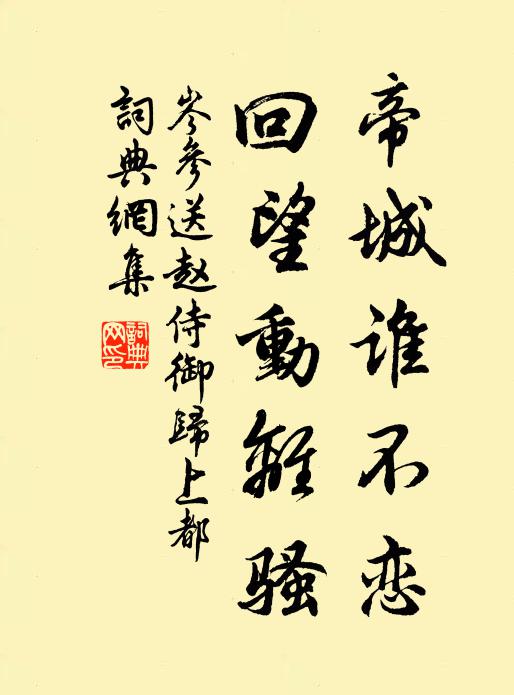 帝城谁不恋
回望動離骚
岑參送赵侍御歸上都
詞典網集
詞典网印